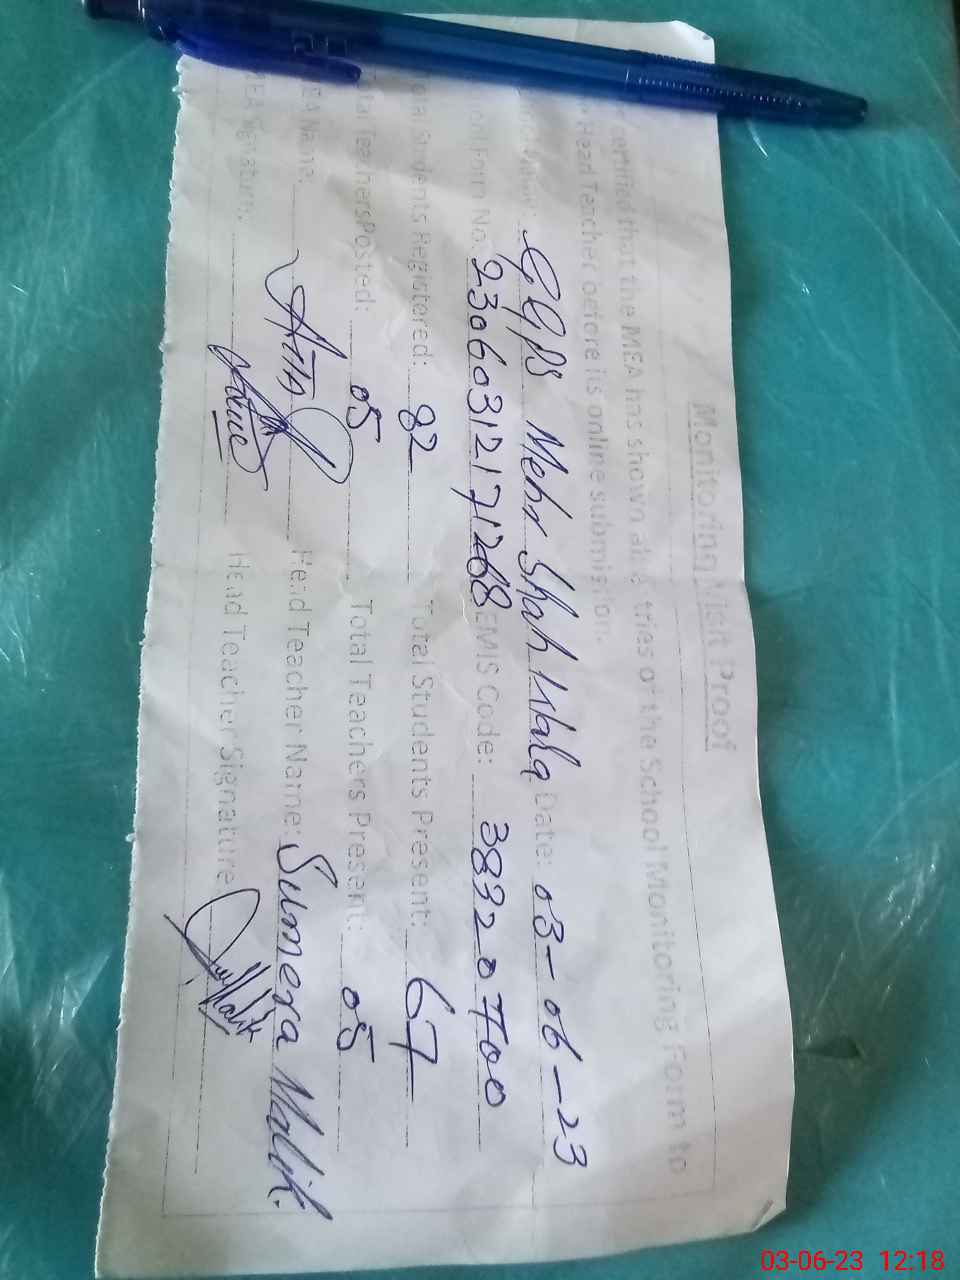 Monitoring Visit Proof
certified that the MEA has shown all entries of the School Monitoring Form to
Head Teacher before its online submission.
GGPS Mehr Shah Wala Date: 03-06-23
Form No. 23060312171268 EMIS Code: 38320700
Total Students Registered: 82 Total Students Present: 67
Total Teachers Posted: 05 Total Teachers Present: 05
MEA Name: Head Teacher Name: Sumera Malik.
MEA Signature: Head Teacher Signature:
03-06-23 12:18